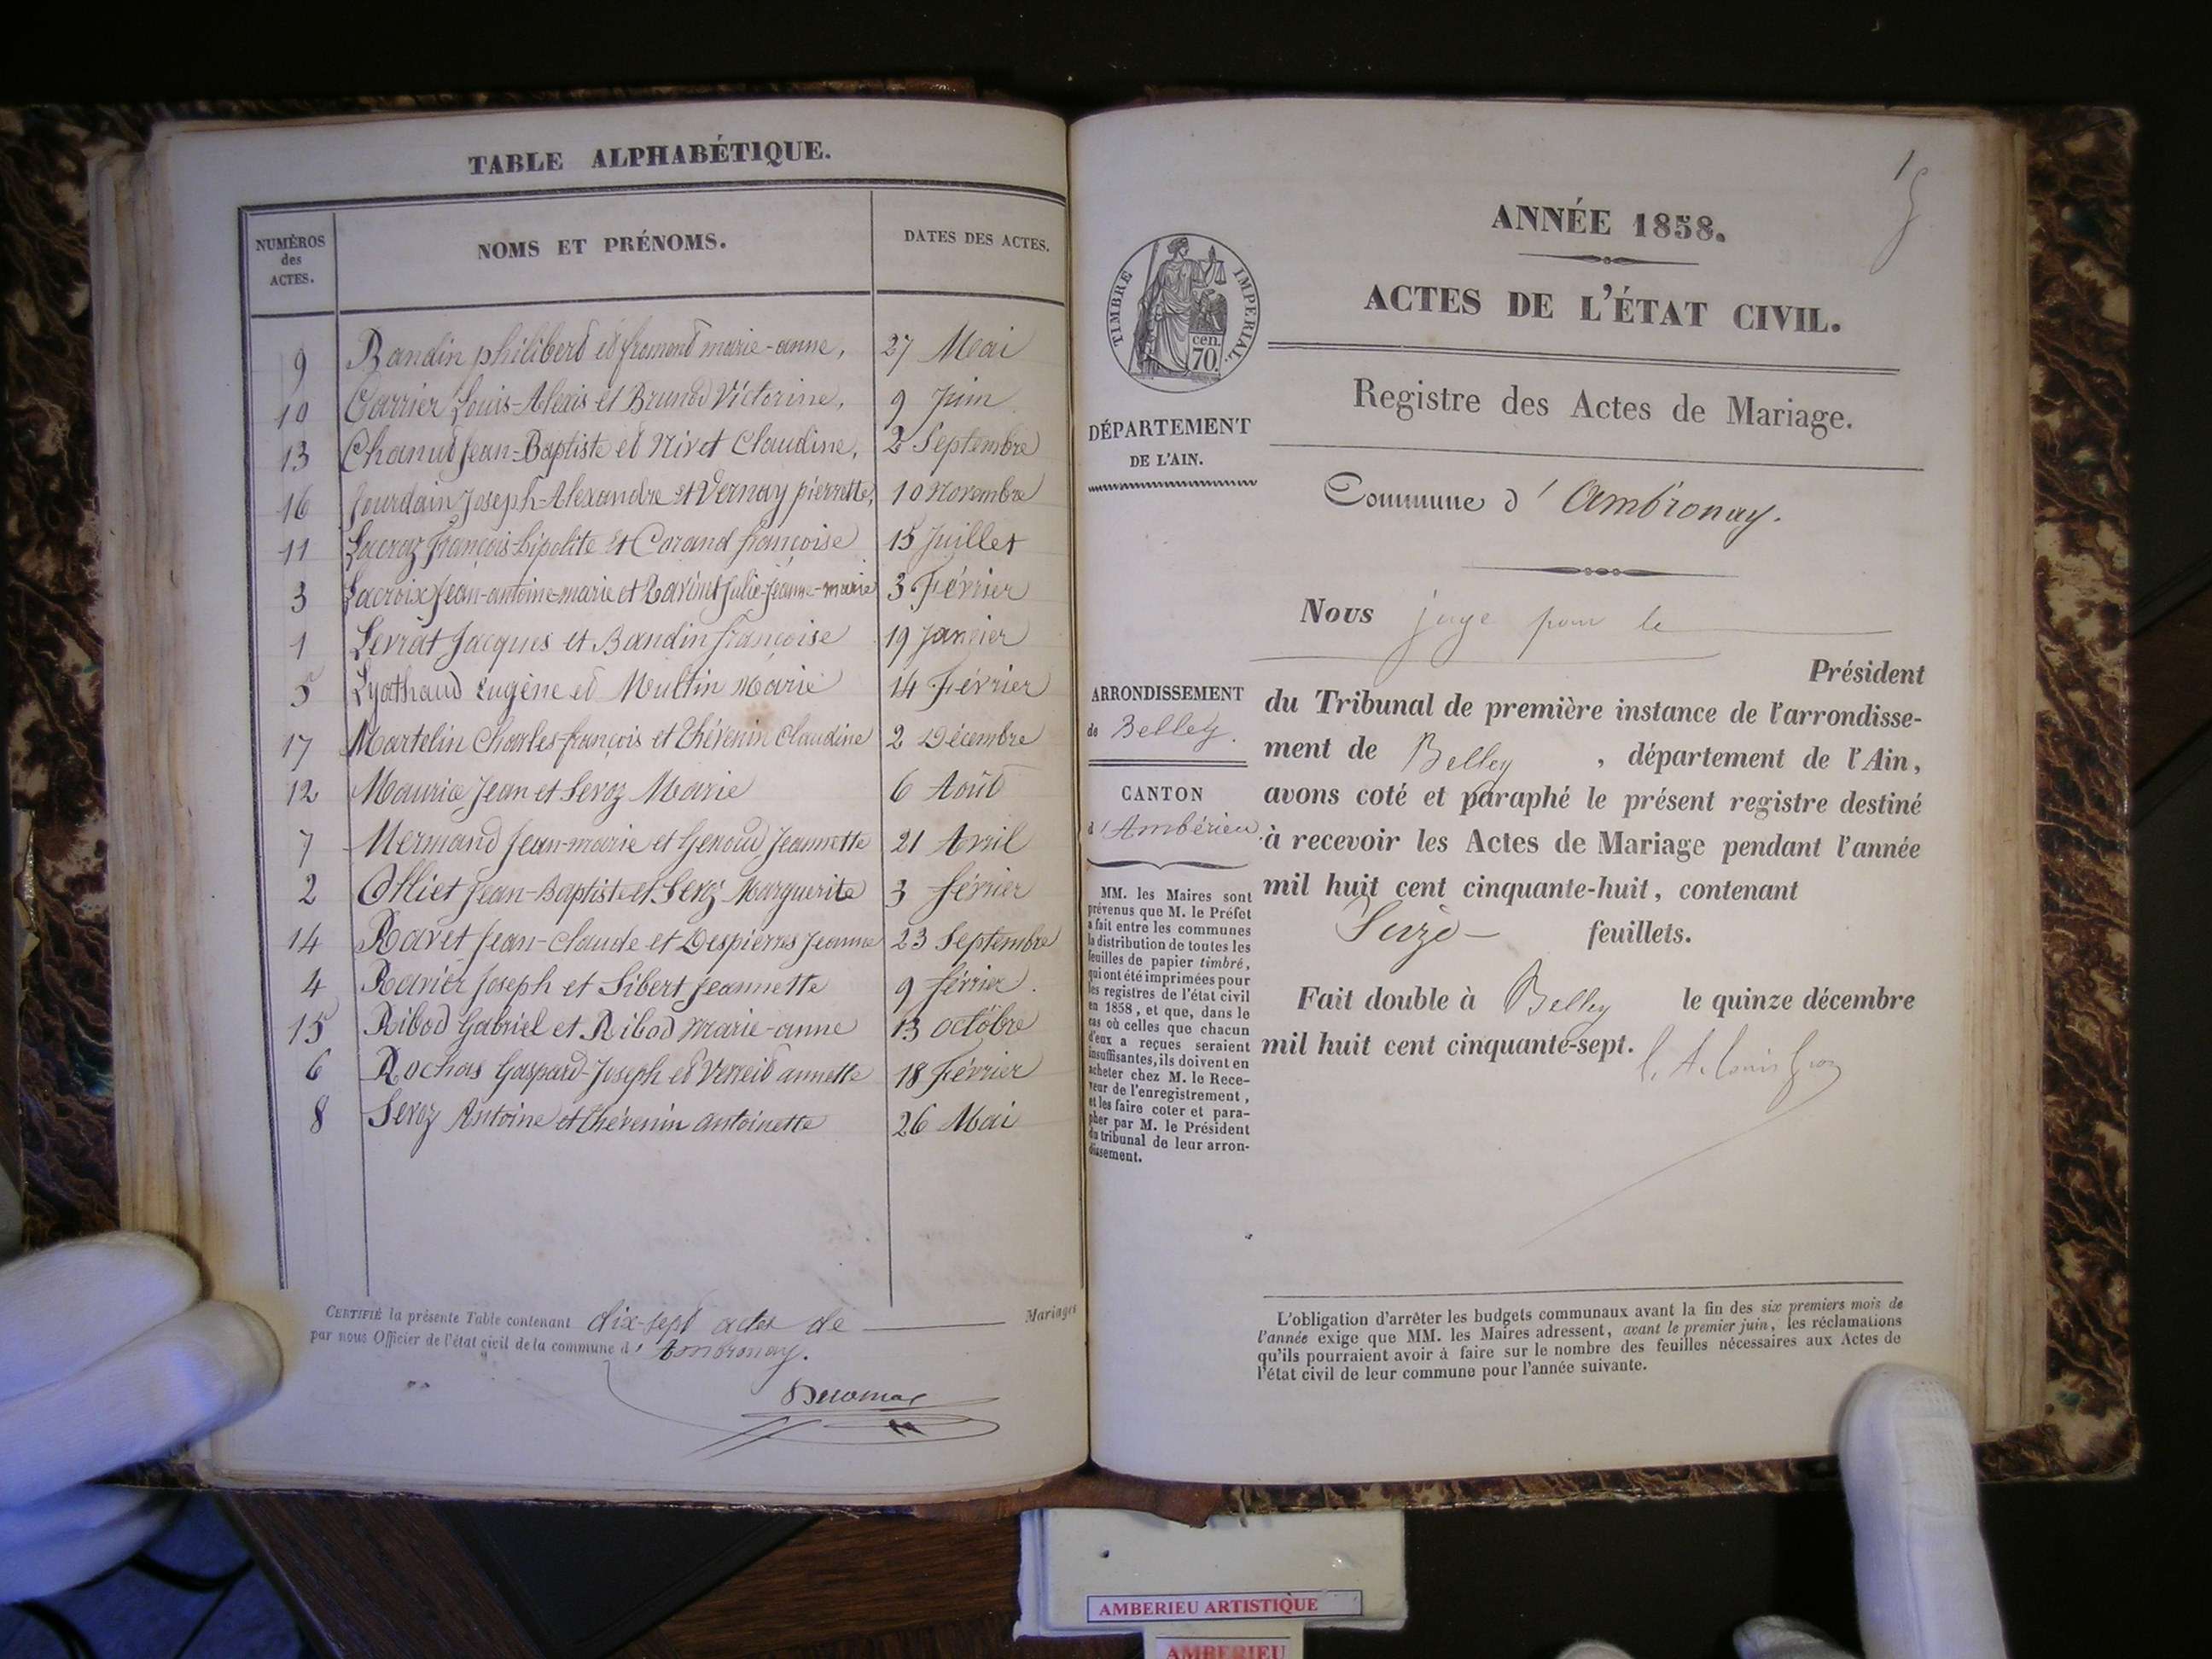 TABLE ALPHABÉTIQUE.
NUMÉROS des ACTES.
NOMS ET PRÉNOMS.
DATES DES ACTES.
9 Bandin philibert et fromont marie-anne, 27 Mai
10 Carrier Louis-Alexis et Brunod Victorine, 9 Juin
13 Chanut Jean-Baptiste et Nivet Claudine, 2 Septembre
16 Jourdain Joseph-Alexandre et Vernay pierrette, 10 Novembre
11 Lacroz François-hipolite et Corand françoise 15 Juillet
3 Lacroix Jean-antoine-marie et Julie-Jeanne-marie 3 Février
1 Levrat Jacques et Bandin françoise 19 Janvier
5 Lyathaud Eugène et Multin Marie 14 Février
17 Martelin Charles-françois et Thévenin Claudine 2 Décembre
12 Maurice Jean et Seroz Marie 6 Août
7 Mermand Jean-marie et Genoud Jeannette 21 Avril
2 Olliet Jean-Baptiste et Seroz Marguerite 3 février
14 Ravet Jean-Claude et Despierres Jeanne 23 Septembre
4 Ravier Joseph et Sibert Jeannette 9 février.
15 Ribod Gabriel et Ribod Marie-anne 13 octobre
6 Rochas Gaspard-Joseph et annette 18 Février
8 Seroz Antoine et thévenin antoinette 26 Mai
CERTIFIÉ la présente Table contenant dix-sept actes de Mariages
par nous Officier de l'état civil de la commune d'Ambronay.
1
ANNÉE 1858.
ACTES DE L'ÉTAT CIVIL.
TIMBRE IMPERIAL.
cen.
70.
Registre des Actes de Mariage.
DÉPARTEMENT
DE L'AIN.
Commune d'Ambronay.
Nous juge pour le
Président
du Tribunal de première instance de l'arrondisse-
ment de Belley, département de l'Ain,
avons coté et paraphé le présent registre destiné
à recevoir les Actes de Mariage pendant l'année
mil huit cent cinquante-huit, contenant
Seize feuillets.
Fait double à Belley le quinze décembre
mil huit cent cinquante-sept.
ARRONDISSEMENT
de Belley.
CANTON
d'Ambérieu.
MM. les Maires sont
prévenus que M. le Préfet
a fait entre les communes
la distribution de toutes les
feuilles de papier timbré,
qui ont été imprimées pour
les registres de l'état civil
en 1858, et que, dans le
cas où celles que chacun
d'eux a reçues seraient
insuffisantes, ils doivent en
acheter chez M. le Rece-
veur de l'enregistrement,
et les faire coter et para-
pher par M. le Président
du tribunal de leur arron-
dissement.
L'obligation d'arrêter les budgets communaux avant la fin des six premiers mois de
l'année exige que MM. les Maires adressent, avant le premier juin, les réclamations
qu'ils pourraient avoir à faire sur le nombre des feuilles nécessaires aux Actes de
l'état civil de leur commune pour l'année suivante.
AMBERIEU ARTISTIQUE
AMBERIEU